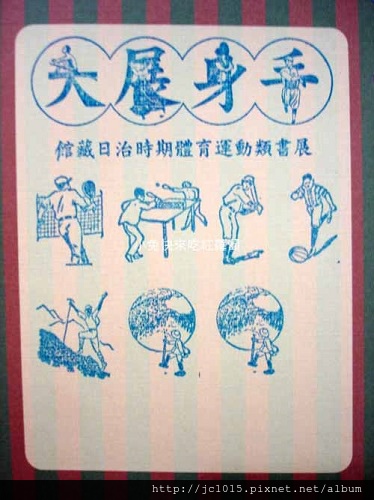 大展身手
館藏日治時期體育運動類書展
http://jc1015.pixnet.net/album